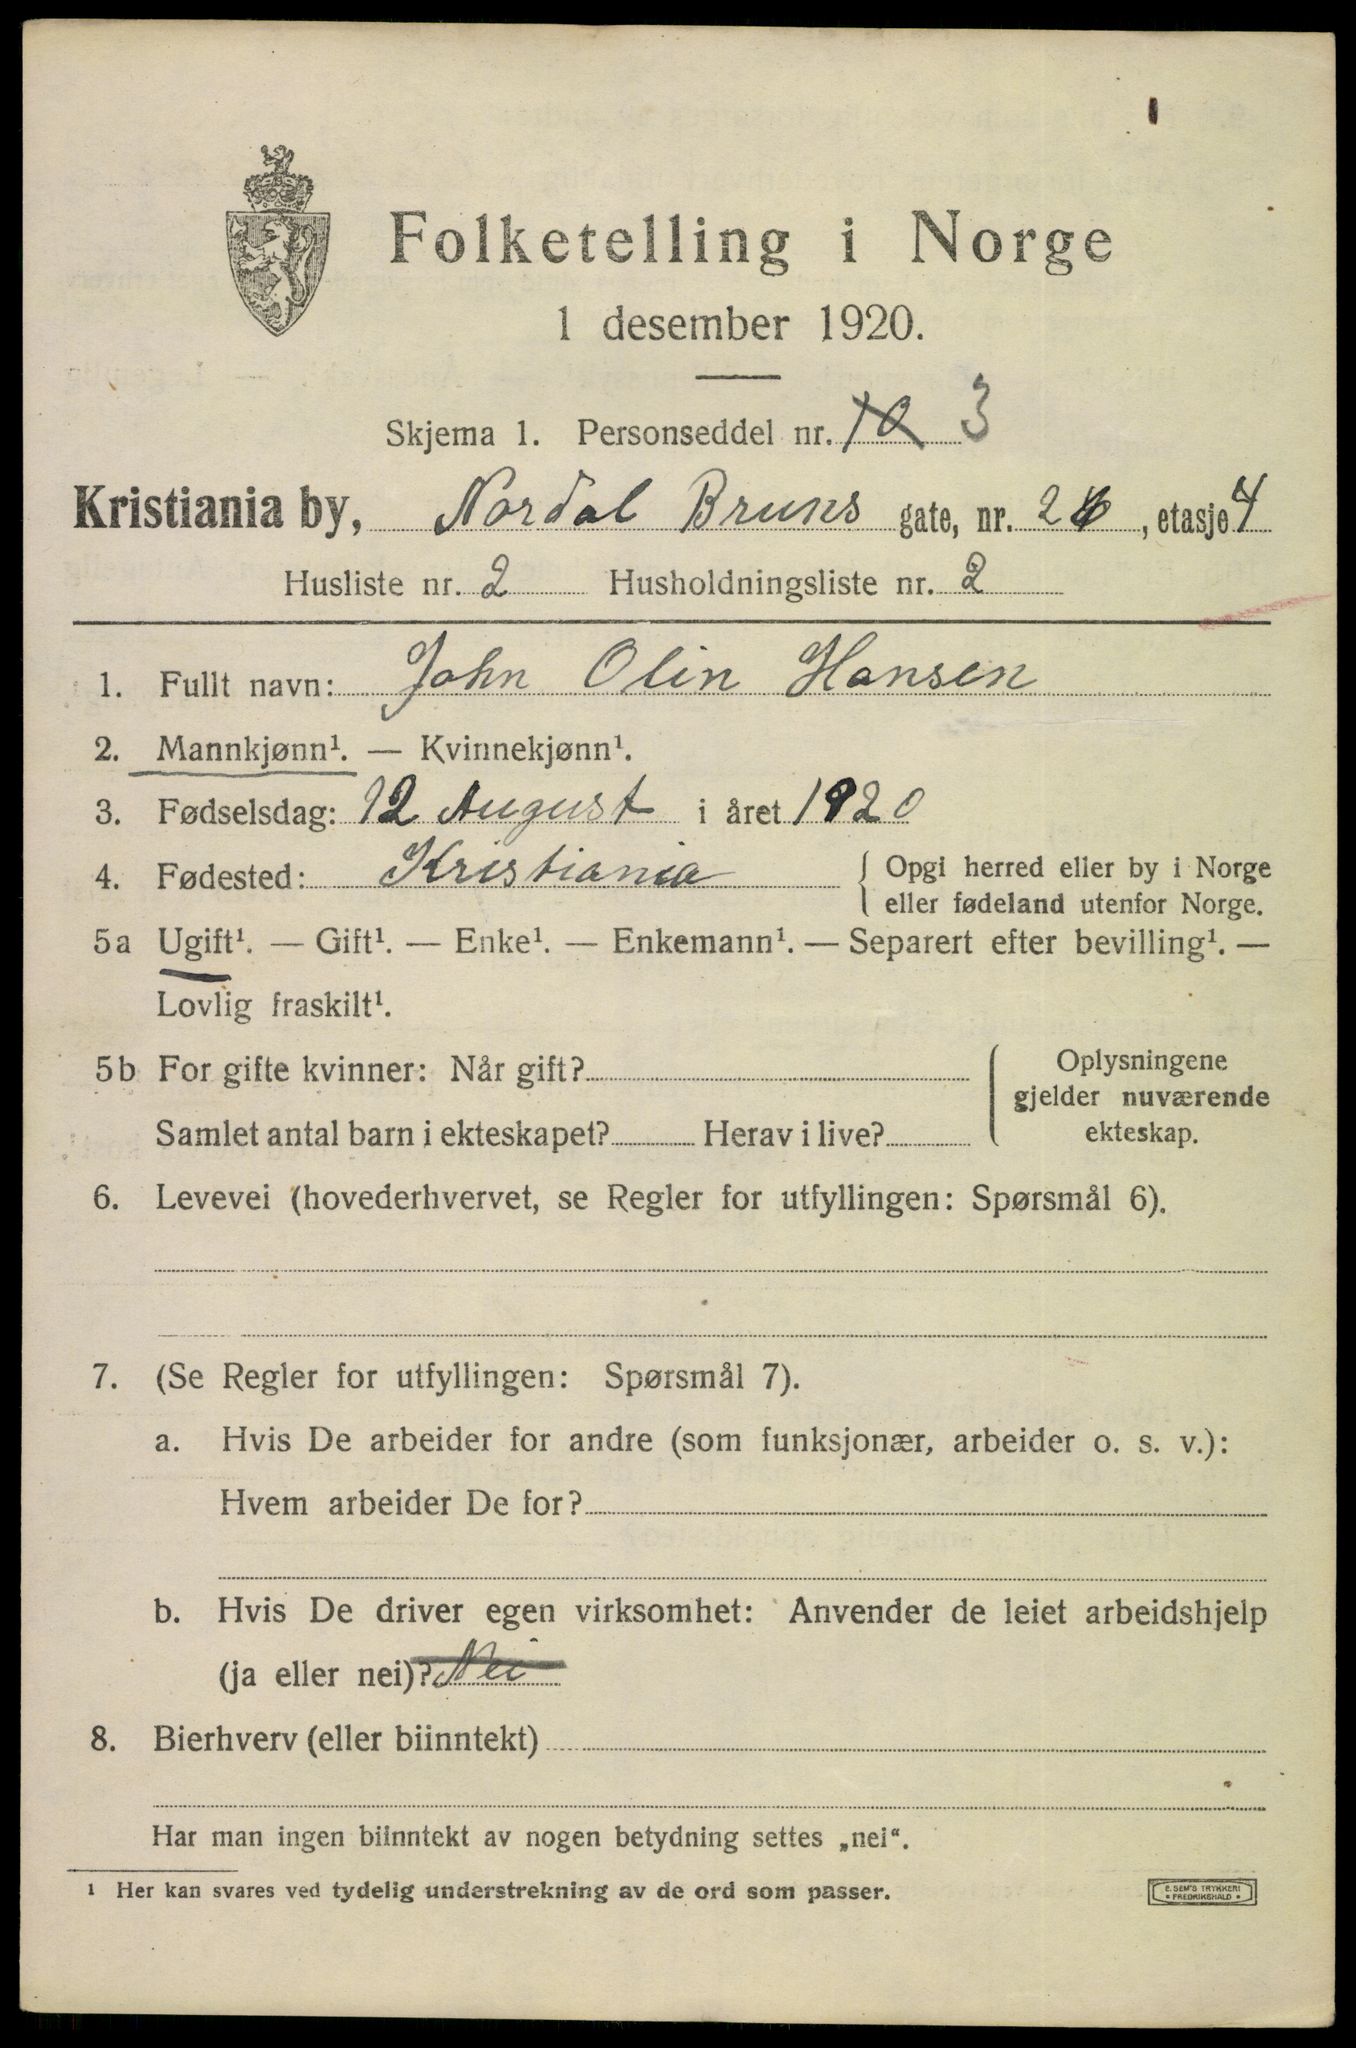 Folketelling i Norge
1 desember 1920.
Skjema 1. Personseddel nr. 10 3
Kristiania by, Nordal Bruns gate, nr. 26, etasje 4
Husliste nr. 2 Husholdningsliste nr. 2
1. Fullt navn: John Olin Hansen
2. Mannkjønn¹. — Kvinnekjønn¹.
3. Fødselsdag: 12 August i året 1920
4. Fødested: Kristiania { Opgi herred eller by i Norge
eller fødeland utenfor Norge.
5a Ugift¹. — Gift¹. — Enke¹. — Enkemann¹. — Separert efter bevilling¹. —
Lovlig fraskilt¹.
5b For gifte kvinner: Når gift?
Samlet antal barn i ekteskapet? Herav i live?
Oplysningene
gjelder nuværende
ekteskap.
6. Levevei (hovederhvervet, se Regler for utfyllingen: Spørsmål 6).
7. (Se Regler for utfyllingen: Spørsmål 7).
a. Hvis De arbeider for andre (som funksjonær, arbeider o. s. v.):
Hvem arbeider De for?
b. Hvis De driver egen virksomhet: Anvender de leiet arbeidshjelp
(ja eller nei)? Nei
8. Bierhverv (eller biinntekt)
Har man ingen biinntekt av nogen betydning settes „nei“.
1 Her kan svares ved tydelig understrekning av de ord som passer.
E. SEM'S TRYKKERI
• FREDRIKSHALD •